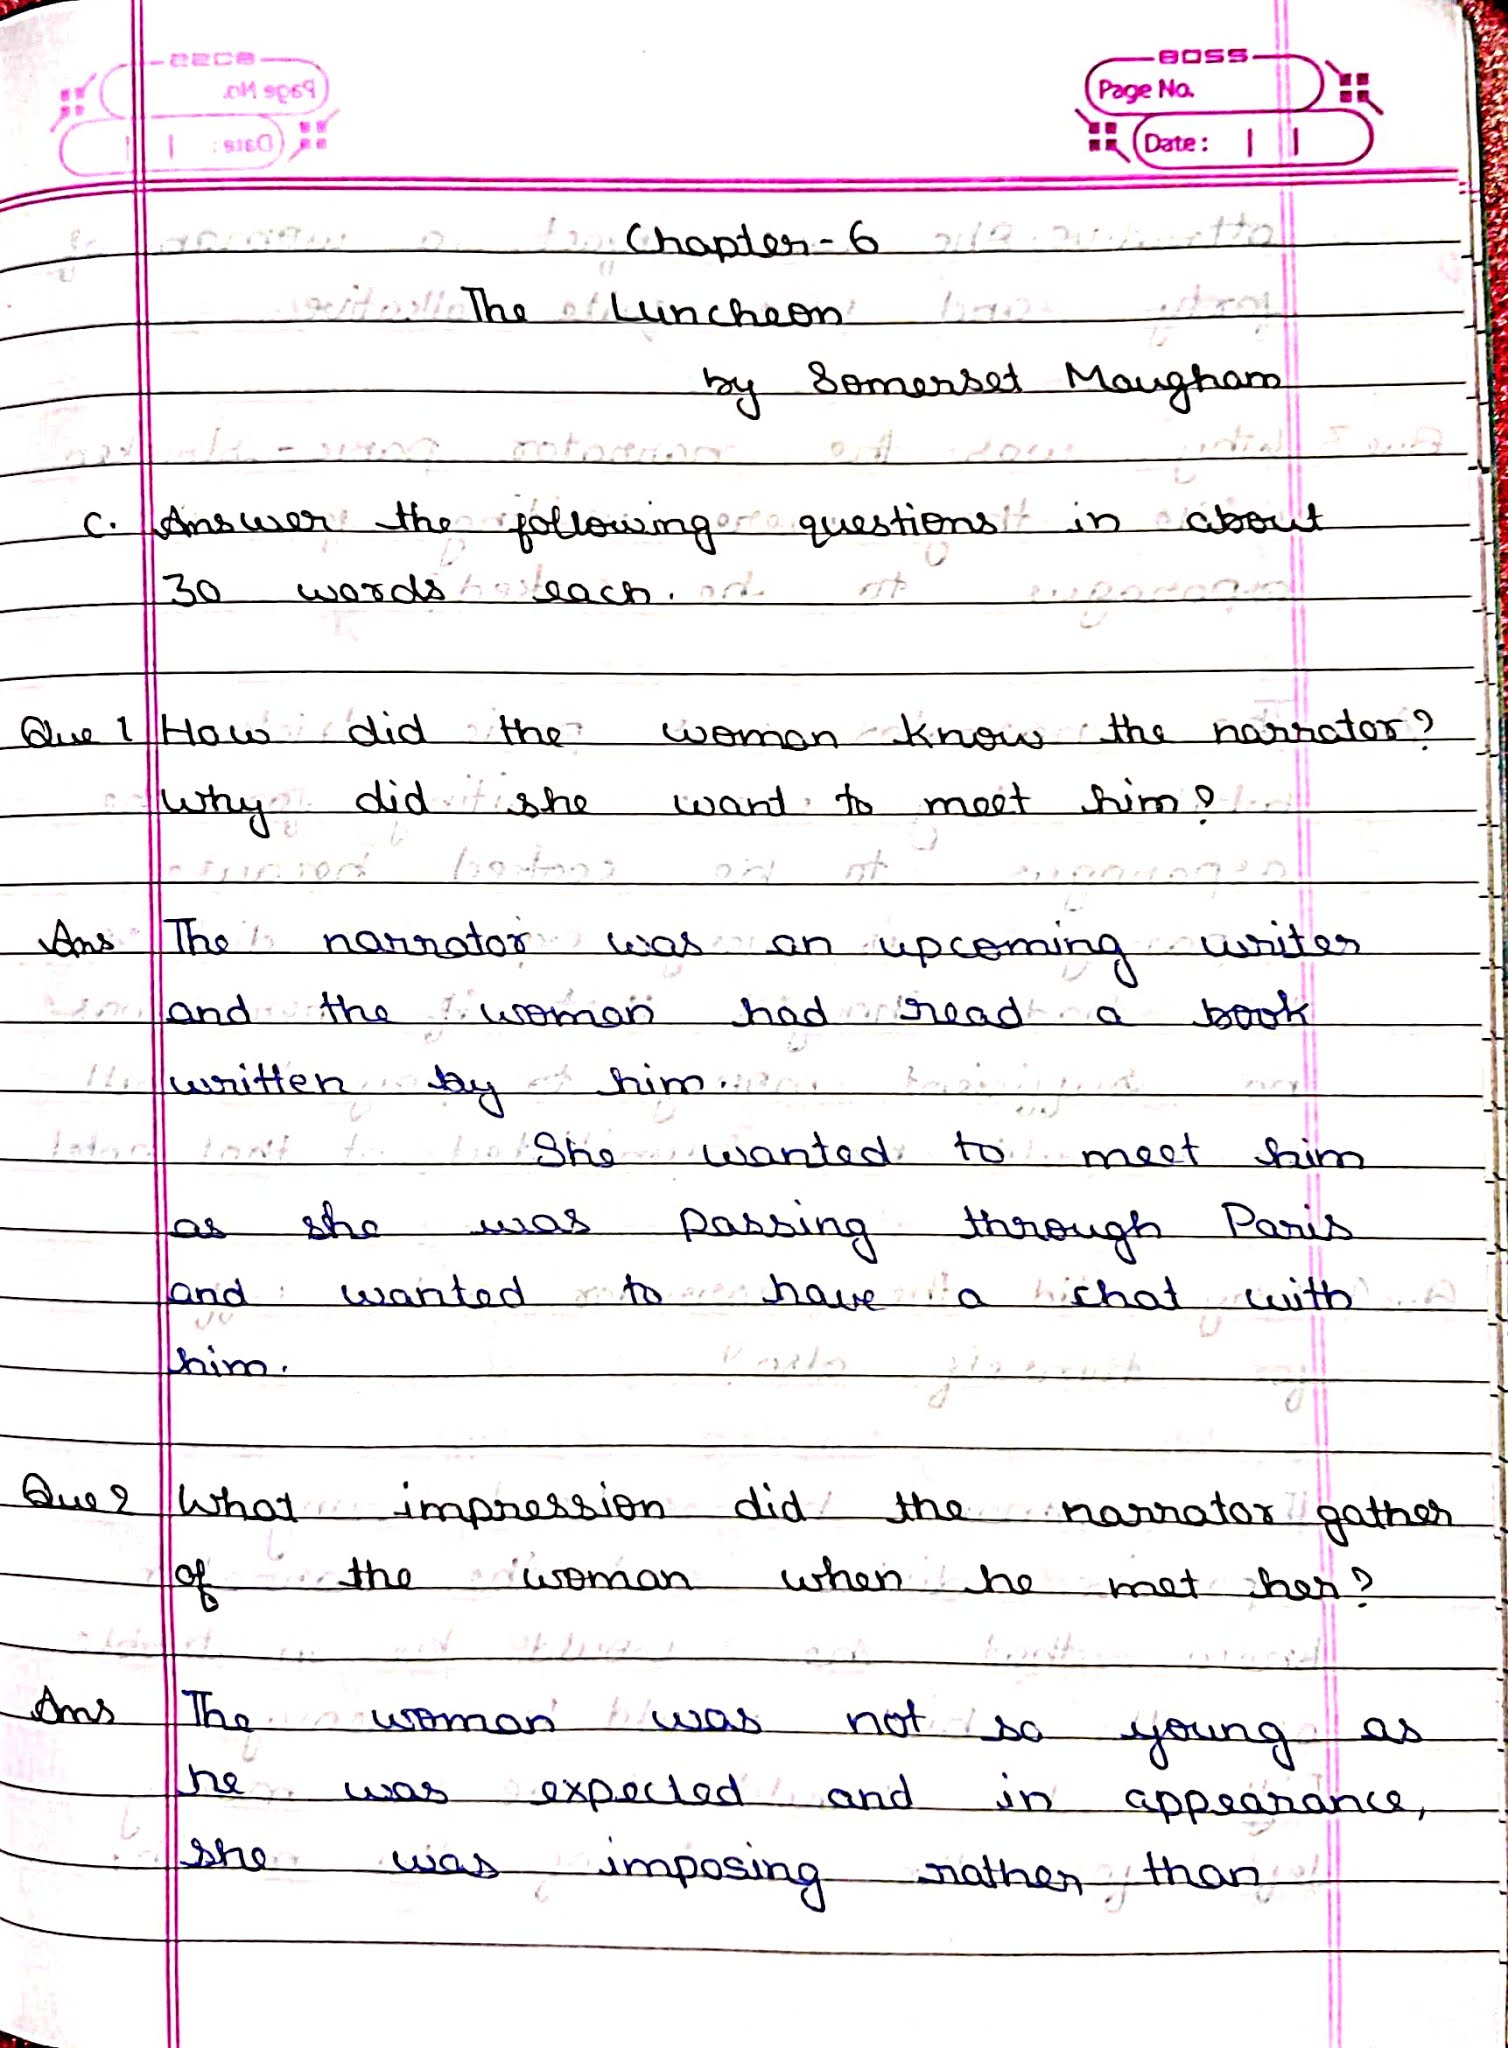 BOSS
Page No.
Date:
Chapter-6
The Luncheon
by Somerset Maugham
C. Answer the following questions in about
30 words each.
Que 1 How did the woman know the narrator?
Why did she want to meet him?
Ans The narrator was an upcoming writer
and the woman had read a book
written by him.
She wanted to meet him
as she was passing through Paris
and wanted to have a chat with
him.
Que 2 What impression did the narrator gather
of the woman when he met her?
Ans The woman was not so young as
he was expected and in appearance,
she was imposing rather than